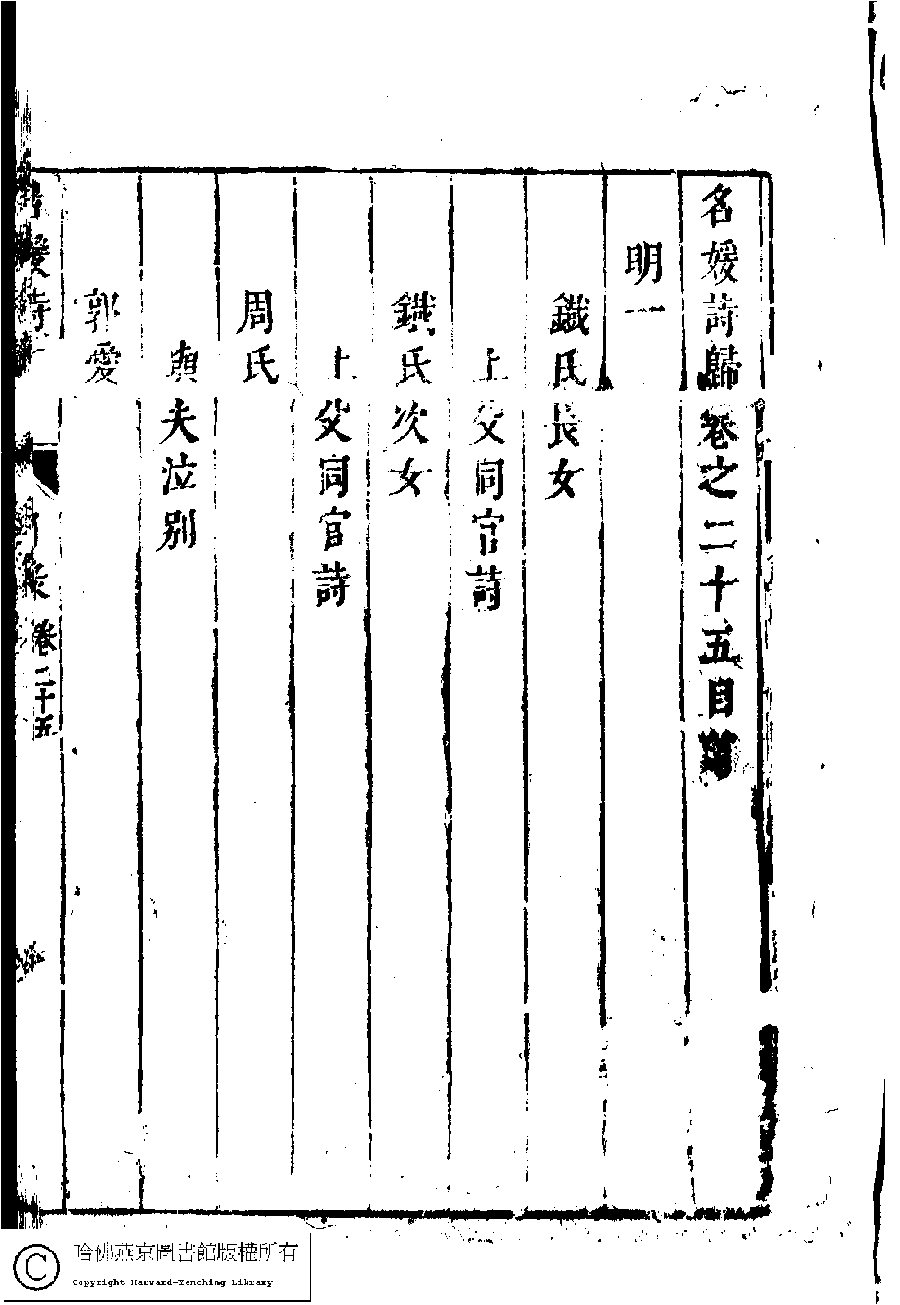 名媛詩歸卷之二十五目
明一
鐵氏長女
上父同官詩
鐵氏次女
上父同官詩
周氏
夫泣別
郭愛
媛詩
卷二十五
哈佛燕京圖書館版權所有
Copyright Harvard-Yenching Library